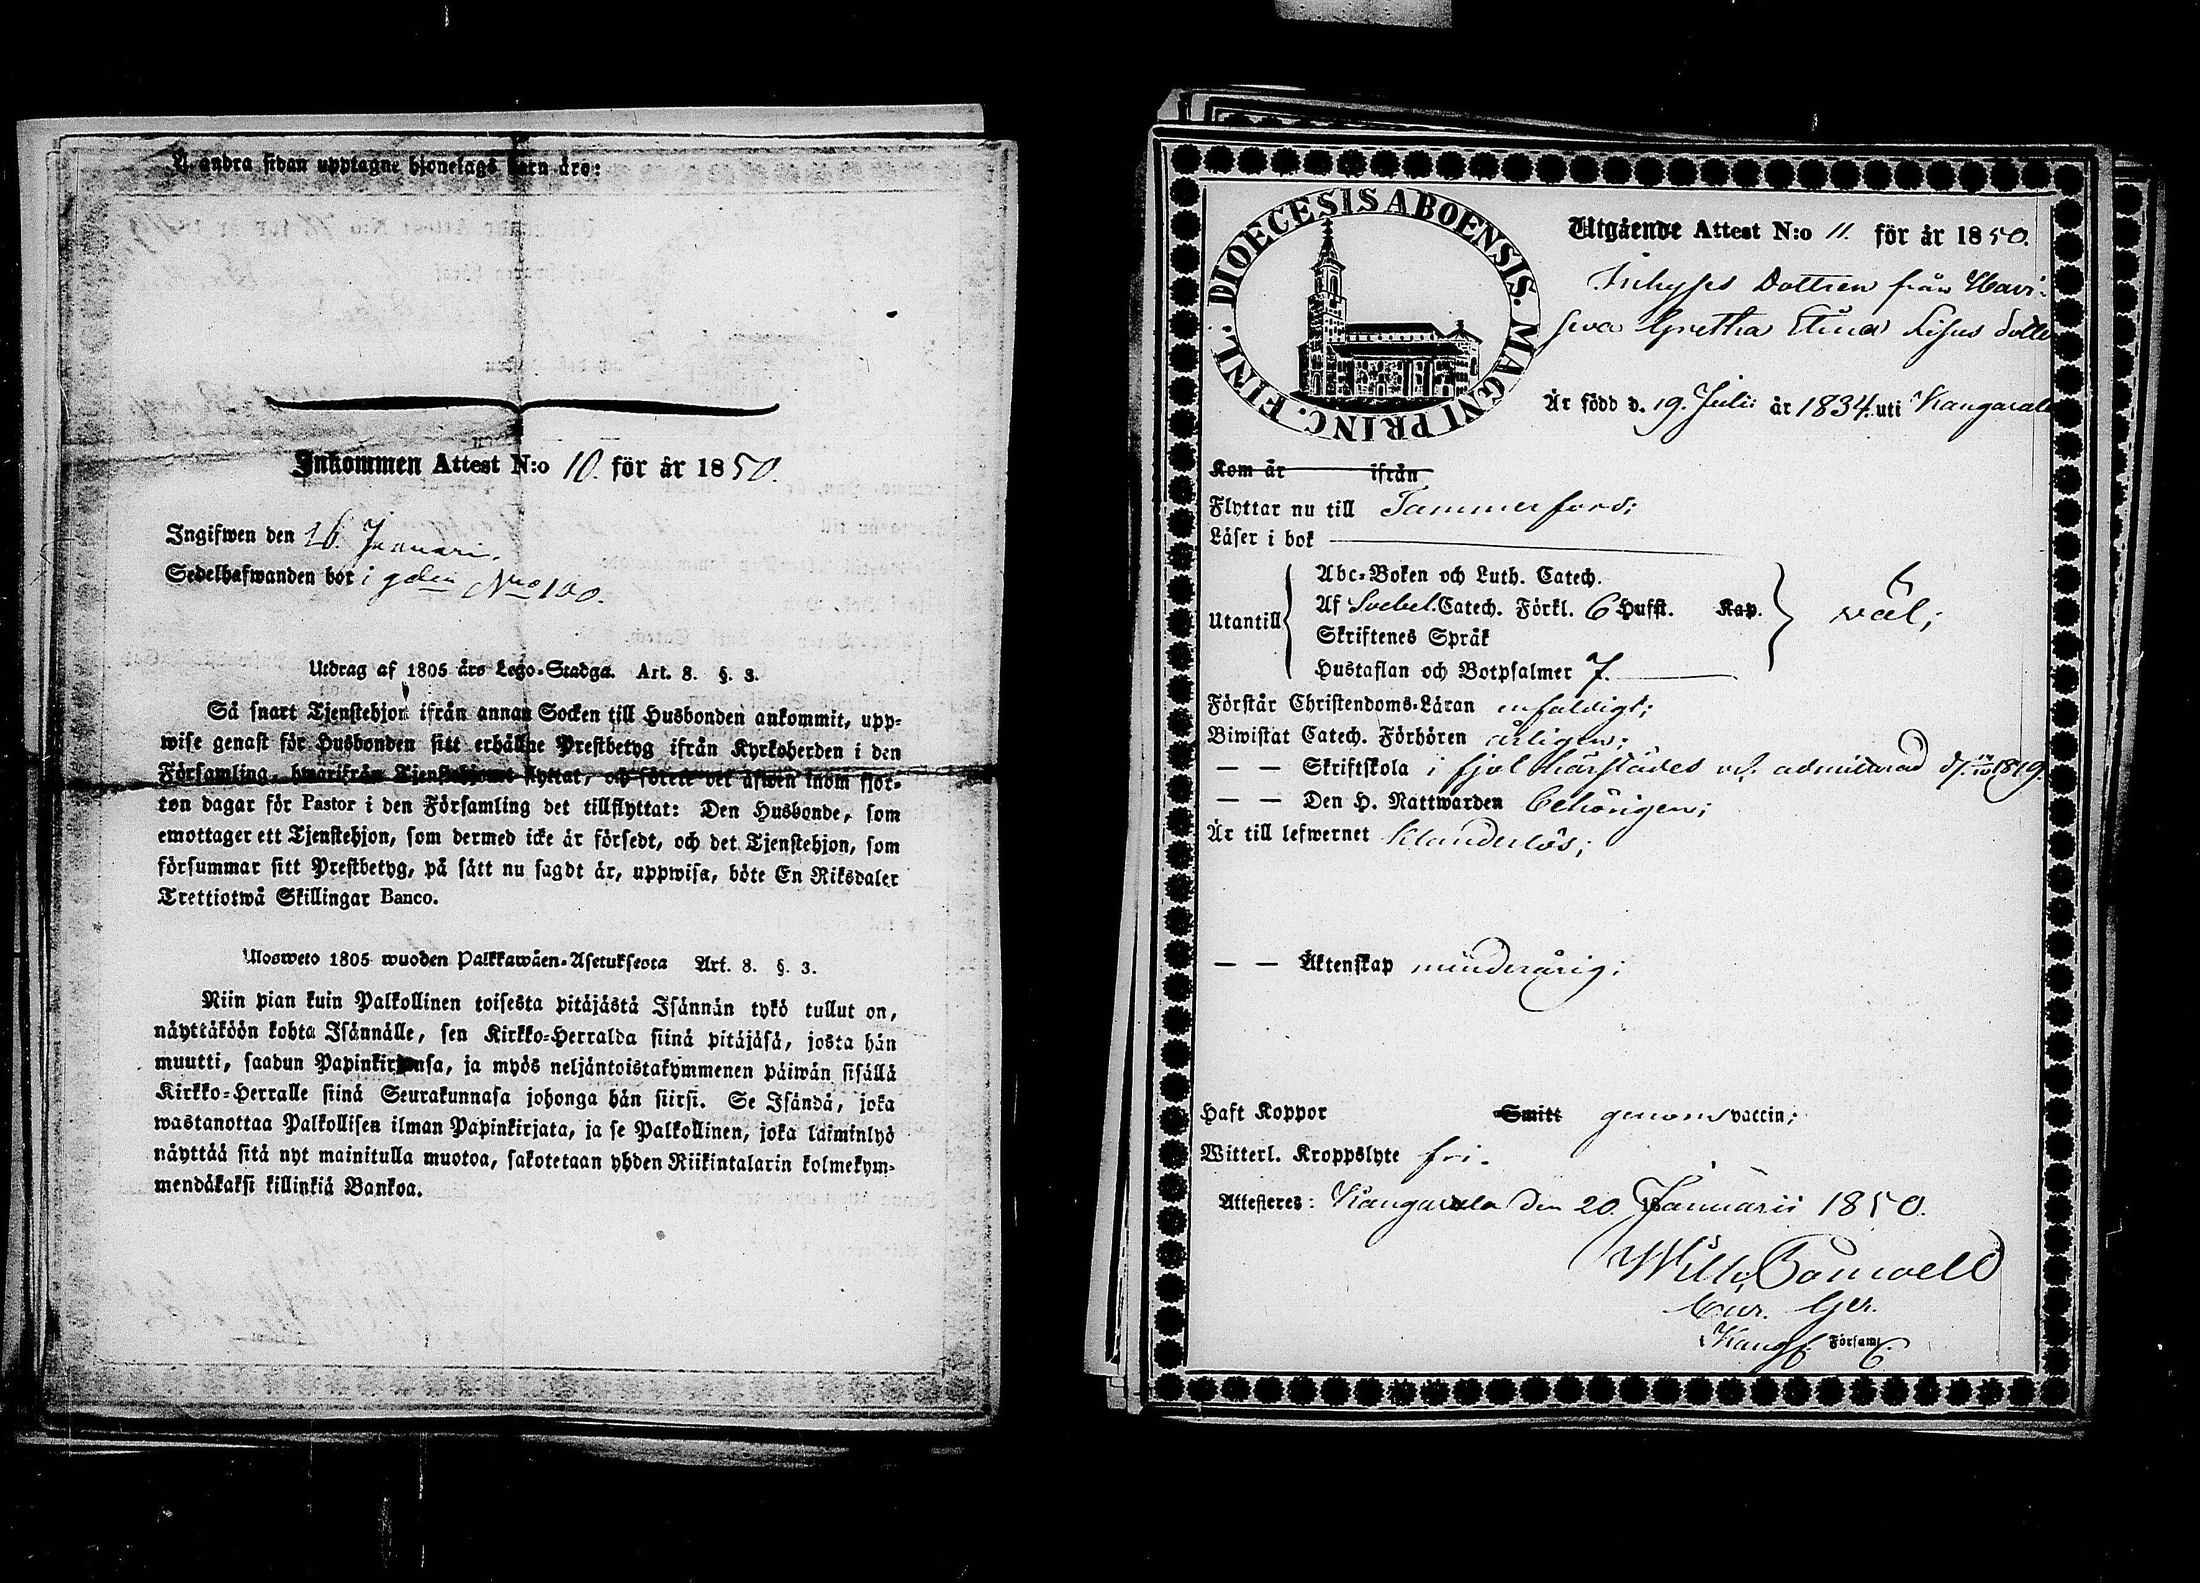 Å andra sidan upptagne hjonelags barn äro:
Inkommen Attest N:o 10. för år 1850.
Ingifwen den 26. Januari.
Sedelhafwanden bor i gden Nro 100.
Utdrag af 1805 års Lego-Stadga. Art. 8. §. 3.
Så snart Tjenstehjon ifrån annan Socken till Husbonden ankommit, upp-
wise genast för Husbonden sitt erhållne Prestbetyg ifrån Kyrkoherden i den
Församling, hwarifrån Tjenstehjonet flyttat, och förete det äfwen inom fjor-
ton dagar för Pastor i den Församling det tillflyttat: Den Husbonde, som
emottager ett Tjenstehjon, som dermed icke är försedt, och det Tjenstehjon, som
försummar sitt Prestbetyg, på sätt nu sagdt är, uppwisa, böte En Riksdaler
Trettiotwå Skillingar Banco.
Ulosweto 1805 wuoden Palkkawäen-Asetuksesta Art. 8. §. 3.
Niin pian kuin Palkollinen toisesta pitäjästä Isännän tykö tullut on,
näyttäköön kohta Isännälle, sen Kirkko-Herralda siinä pitäjäsä, josta hän
muutti, saadun Papinkirjansa, ja myös neljäntoistakymmenen päiwän sisällä
Kirkko-Herralle siinä Seurakunnasa johonga hän siirsi. Se Isändä, joka
wastanottaa Palkollisen ilman Papinkirjata, ja se Palkollinen, joka laiminlyö
näyttää sitä nyt mainitulla muotoa, sakotetaan yhden Riikintalarin kolmekym-
mendäkaksi killinkiä Bankoa.
FINL. DIOECESIS ABOENSIS. MAGNI PRINC.
Utgående Attest N:o 11. för år 1850.
Inhyses Dottren från Havi-
seva Gretha Stina Lisus dotter
Är född d. 19. Julii år 1834. uti Kangasala
Kom år ifrån
Flyttar nu till Tammerfors;
Läser i bok
Utantill
Abc-Boken och Luth. Catech.
Af Svebel. Catech. Förkl. 6 Hufst. Kap.
Skriftenes Språk
Hustaflan och Botpsalmer 7.
väl;
Förstår Christendoms-Läran enfaldigt;
Biwistat Catech. Förhören årligen;
— — Skriftskola i fjol härstädes och admitterad d. 1849
— — Den H. Nattwarden behörigen;
Är till lefwernet klanderlös;
— — Äktenskap minderårig;
Haft Koppor Smitt genom vaccin;
Witterl. Kroppslyte fri.
Attesteres: Kangasala den 20. 18 Januarii 1850.
Wilh.
Cur. Ger.
i Kangs. Församl.